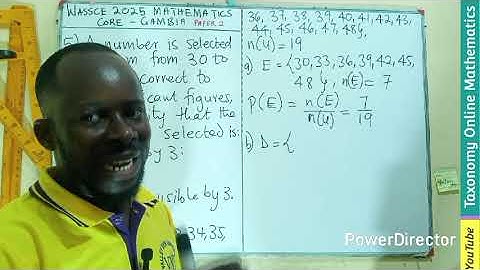 WASSCE 2025 MATHEMATICS
CORE - GAMBIA PAPER 2
5) A number is selected
om from 30 to
correct to
cant figures,
ity that the
selected is:
by 3:
isible by 3.
34, 35,
36, 37, 38, 39, 40, 41, 42, 43,
44, 45, 46, 47, 48},
n(U) = 19
a) E = {30, 33, 36, 39, 42, 45,
48}, n(E) = 7
P(E) = n(E)/n(U) = 7/19
b) D = {
PowerDirector
Taxonomy Online Mathematics
YouTube